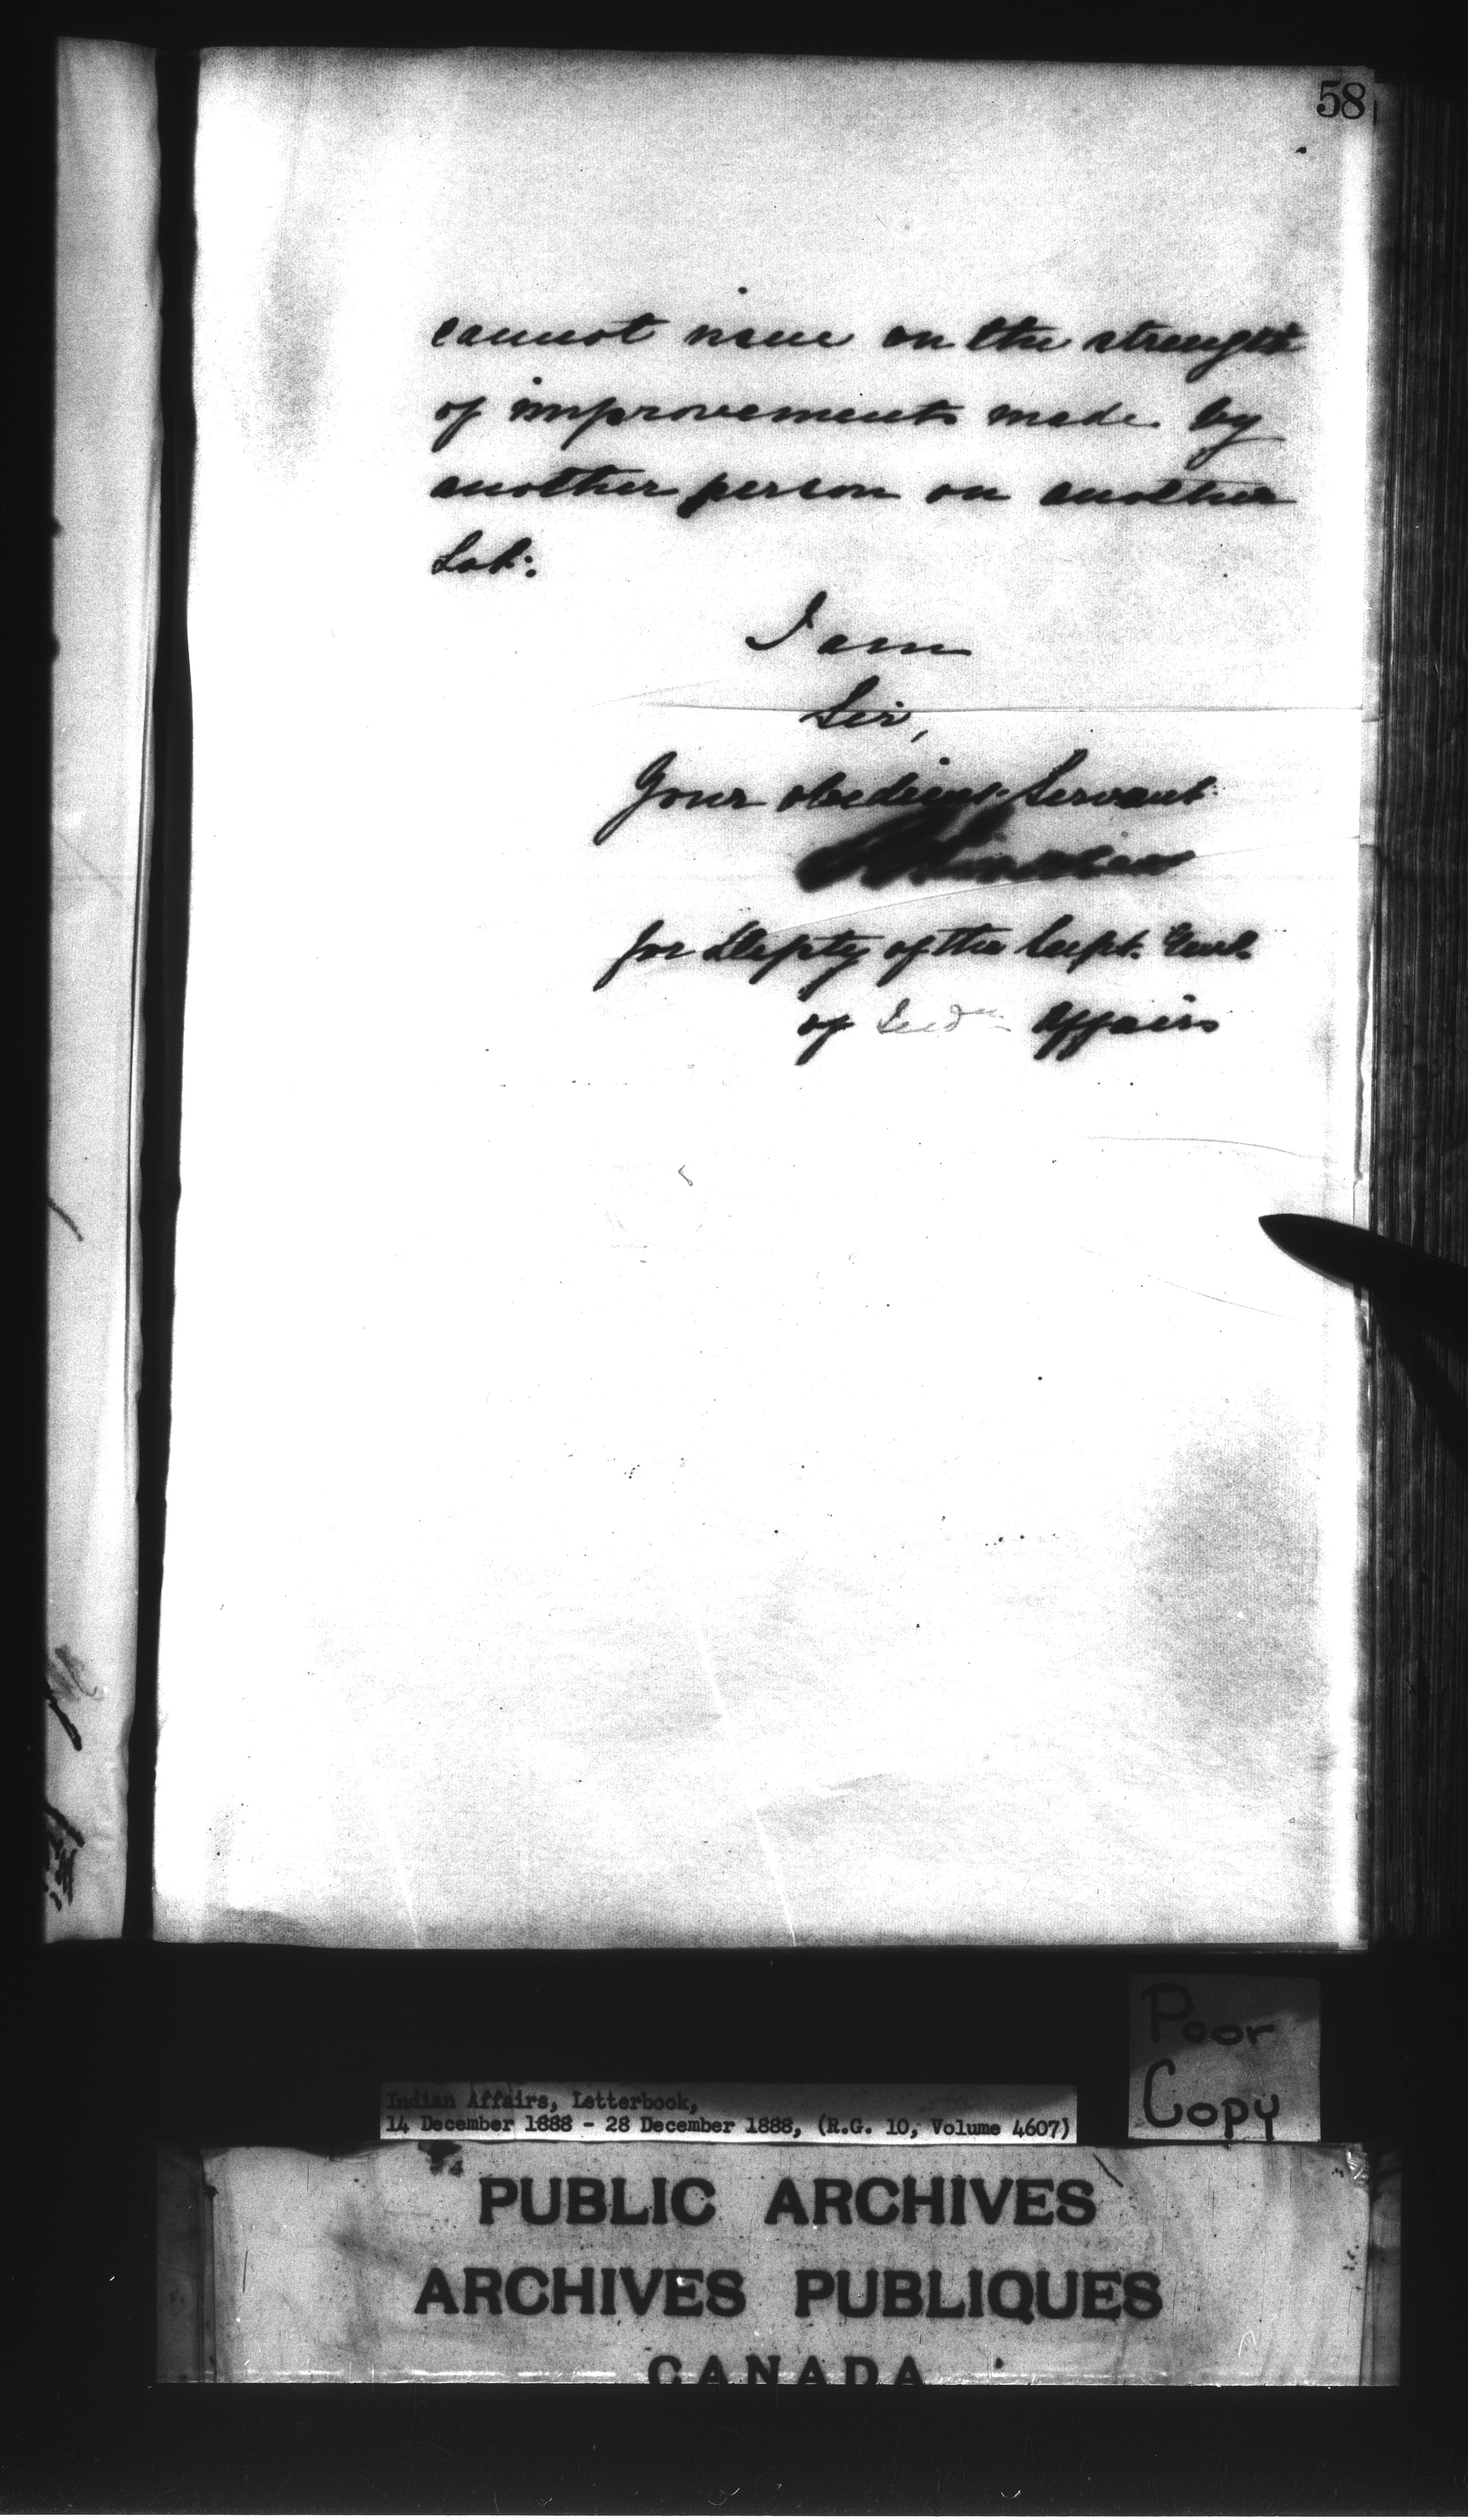 58
cannot issue on the strength
of improvements made by
another person on another
Lot.
I am
Sir,
Your obedient Servant
for Depty of the Supt. Genl.
of Indn Affairs
Poor
Copy
Indian Affairs, Letterbook,
14 December 1888 - 28 December 1888, (R.G. 10, Volume 4607)
PUBLIC ARCHIVES
ARCHIVES PUBLIQUES
CANADA